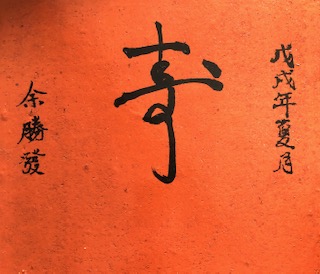 戊戌年夏月
寿
余勝發